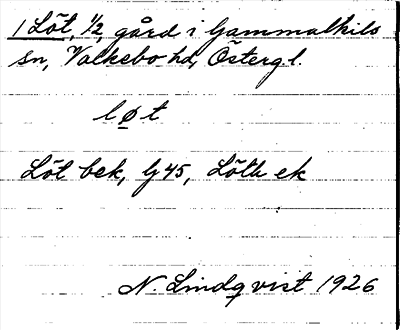 1 Löt, 1/2 gård i Gammalkils
sn, Valkebo hd, Östergl.
løt
Löt bek, G 45, Löth ek
N. Lindqvist 1926